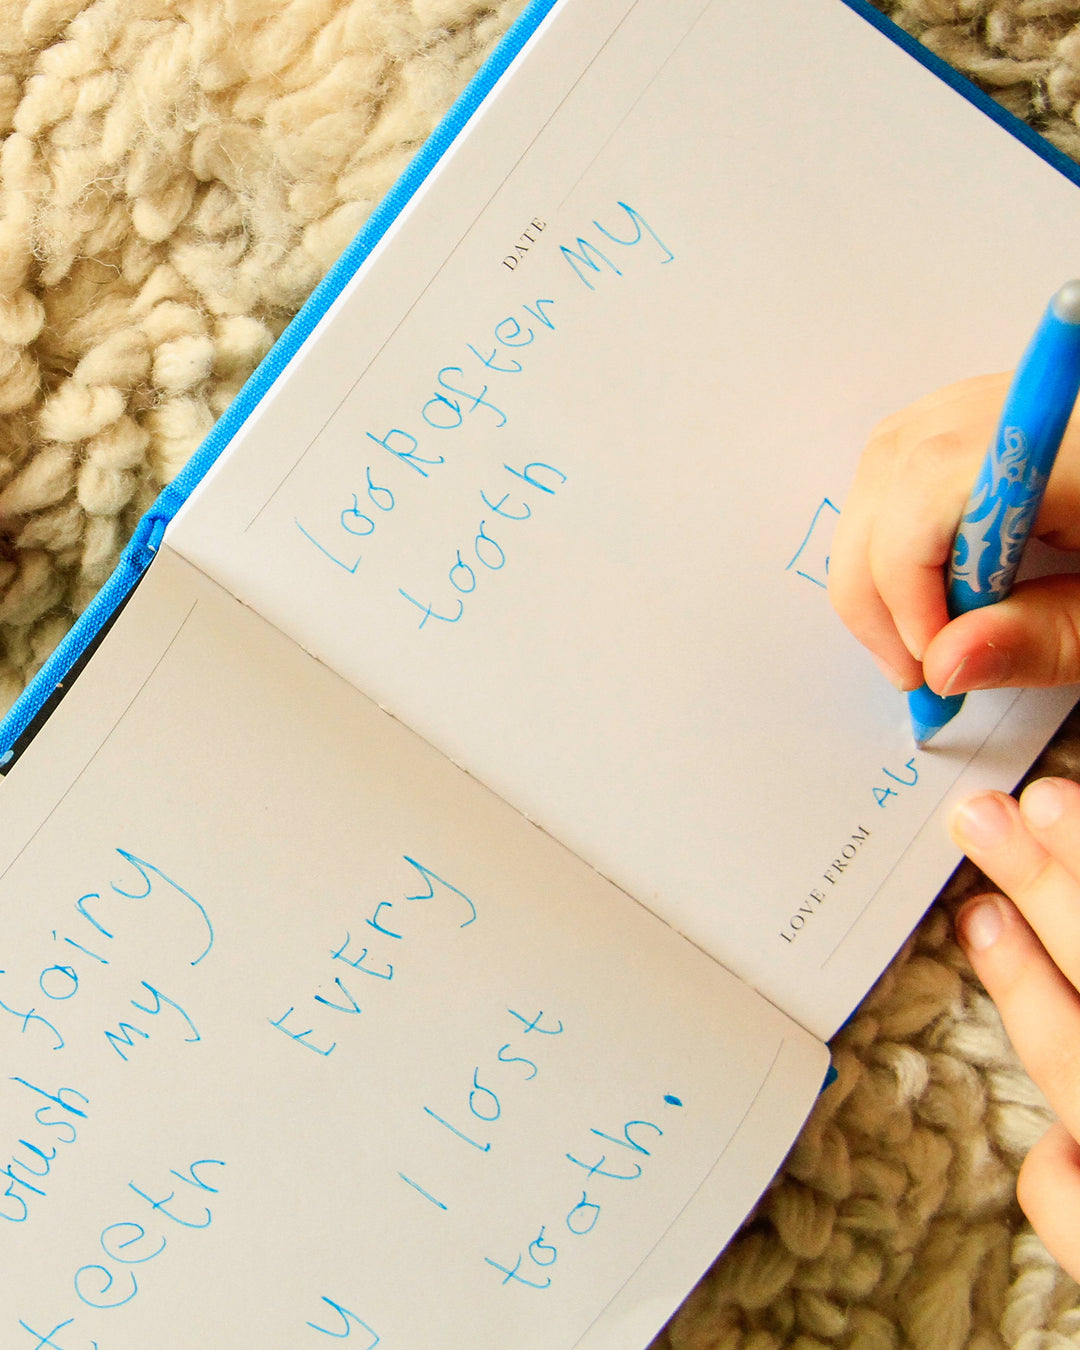 fairy
brush my
teeth EVEry
y I lost
tooth.
DATE
Look after My
tooth
LOVE FROM